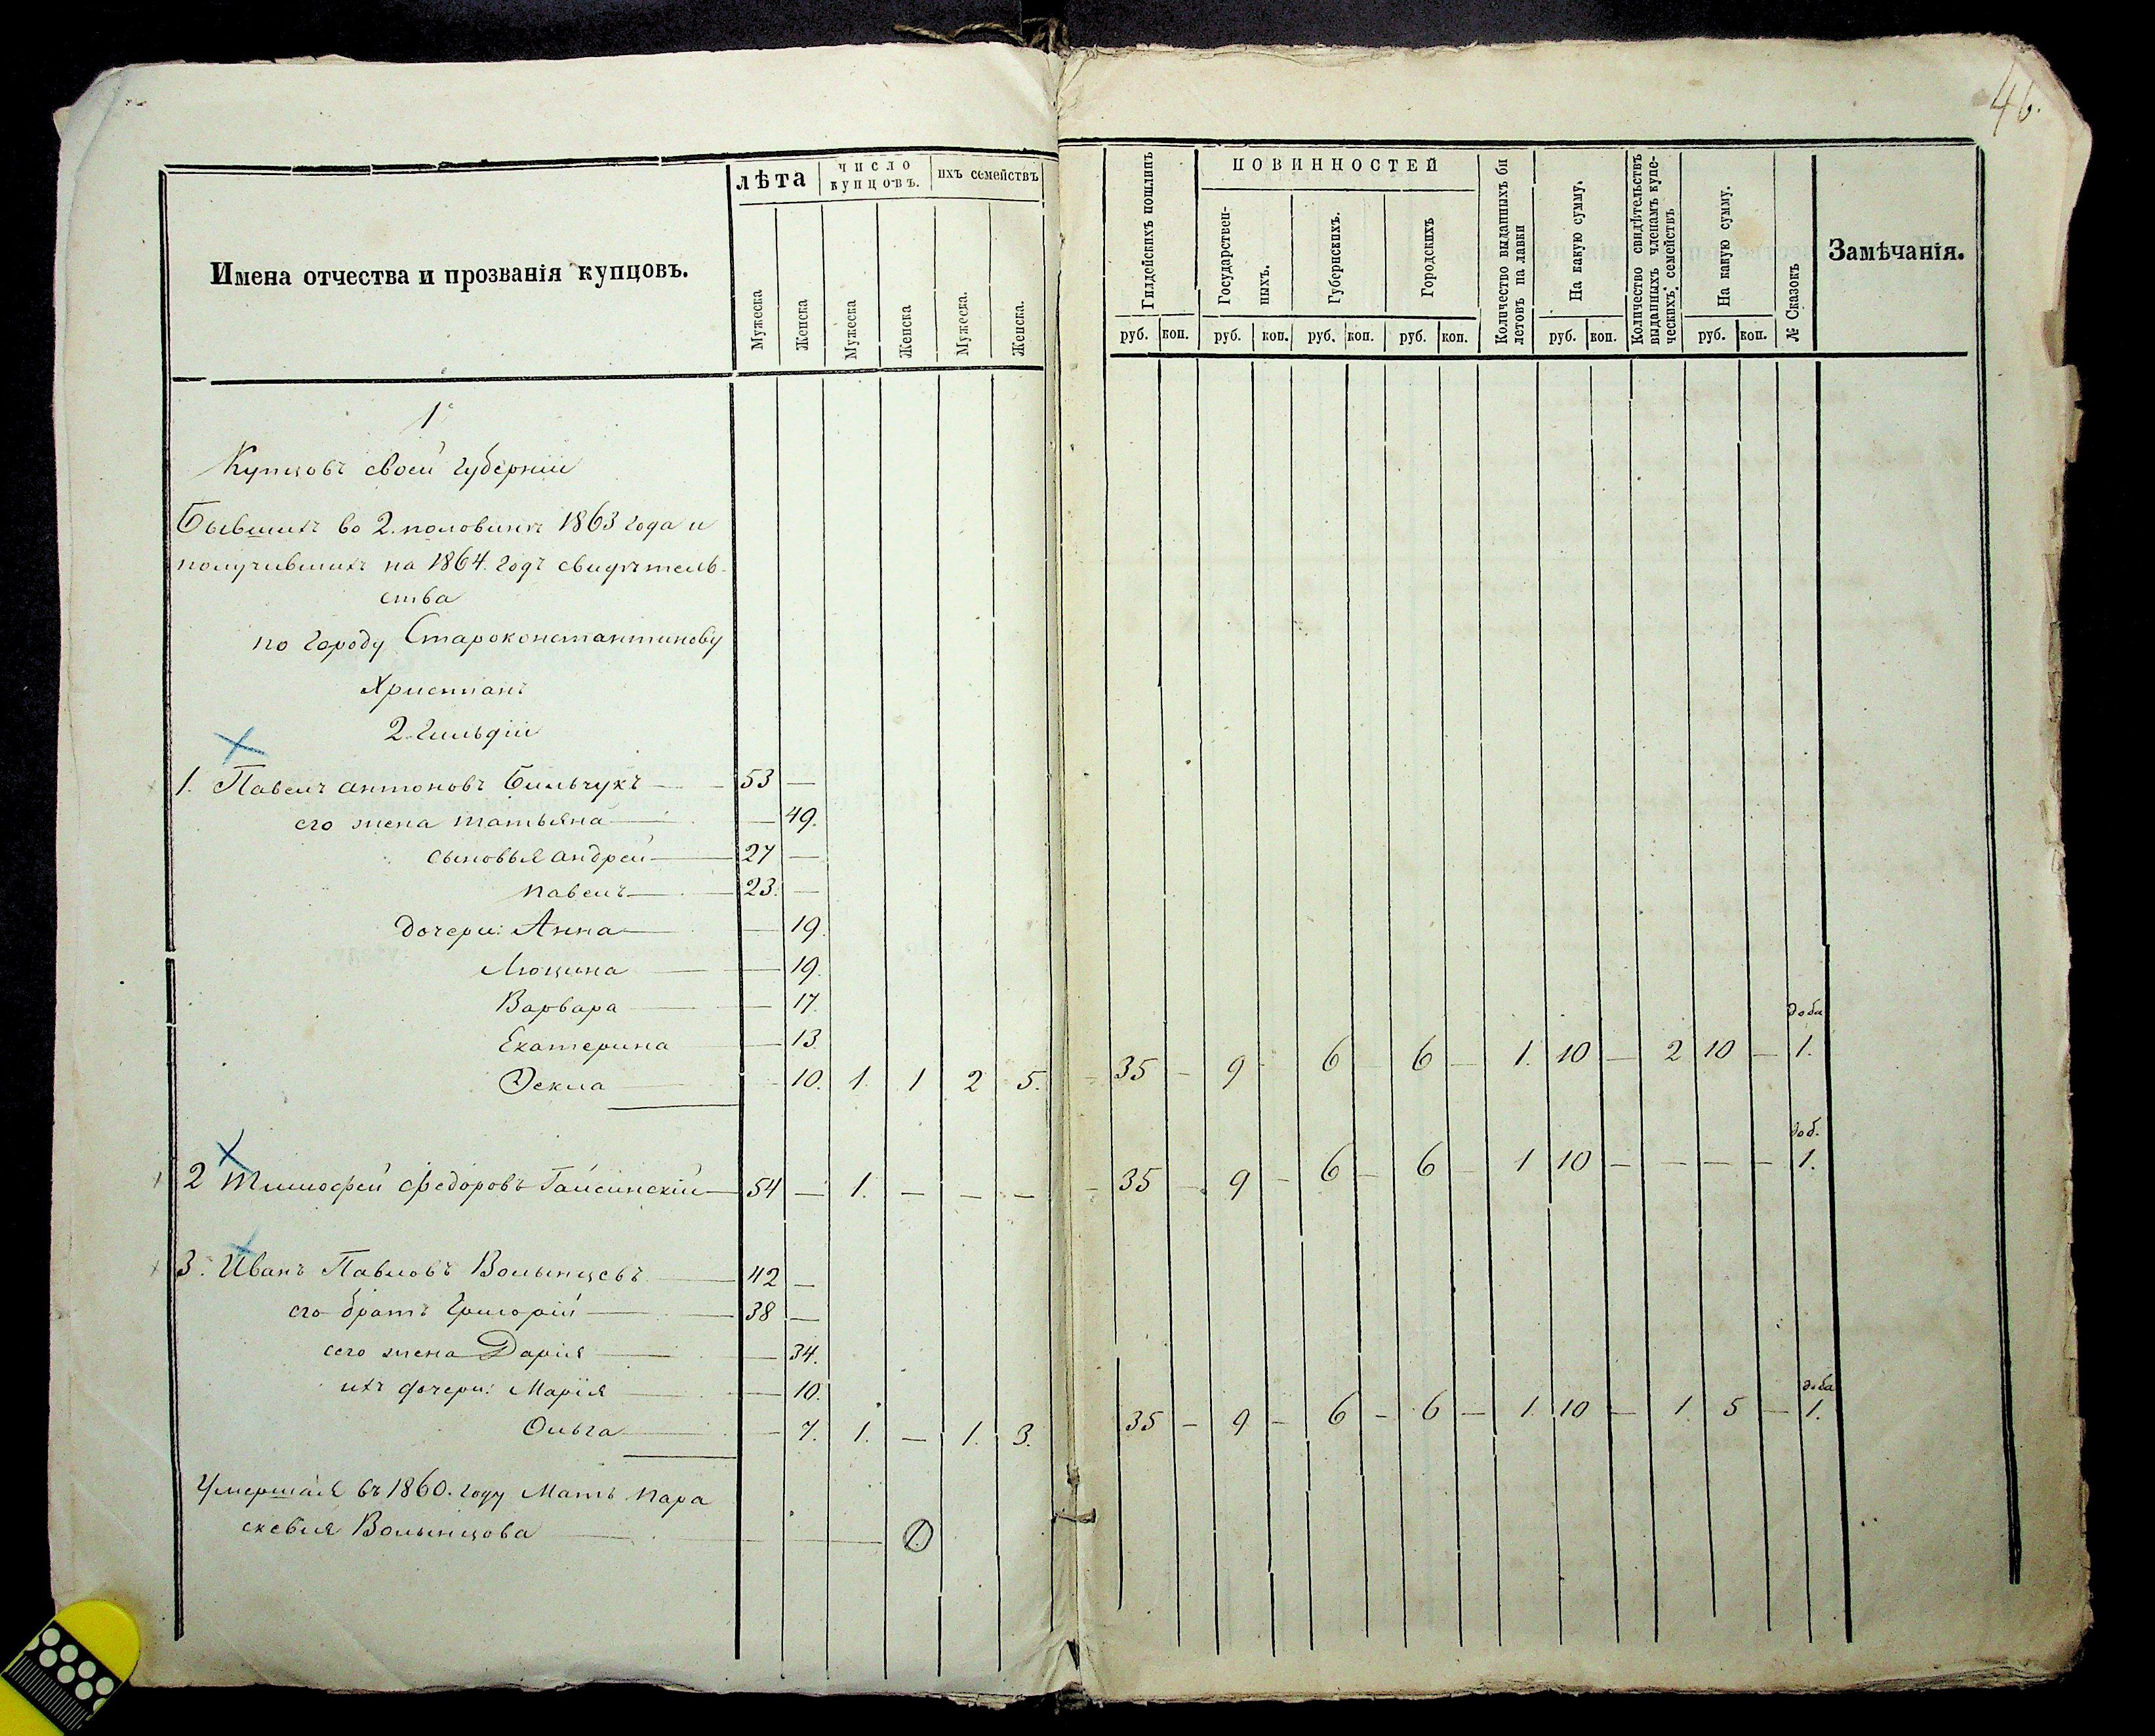 46.
Имена отчества и прозванія купцовъ.
лѣта
число купцовъ.
ихъ семействъ
Мужеска
Женска
Мужеска
Женска
Мужеска.
Женска.
Гилдейскихъ пошлинъ
ПОВИННОСТЕЙ
Государствен-
ныхъ.
Губернскихъ.
Городскихъ
Количество выданныхъ би
летовъ на лавки
На какую сумму.
Количество свидѣтельствъ
выданныхъ членамъ купе-
ческихъ семействъ
На какую сумму.
№ Сказокъ
Замѣчанія.
руб. коп. руб. коп. руб. коп. руб. коп. руб. коп. руб. коп.
1
Купцовъ своей губерніи
Бывшихъ во 2. половинѣ 1863 года и
получившихъ на 1864. годъ свидѣтель-
ства
по городу Староконстантинову
Христіанъ
2. Гильдіи
1. Павелъ Антоновъ Бильчукъ — 53 —
его жена Татьяна — — 49.
сыновья Андрей — 27 —
Павелъ — 23. —
дочери: Анна — — 19.
Люцина — — 19.
Варвара — — 17.
Екатерина — 13
Θекла — — 10. 1. 1 2 5. — 35 — 9 - 6 — 6 — 1. 10 — 2 10 — доба 1.
2 Тимофей Федоровъ Гайсинскій — 54 — 1. — — — — 35 — 9 — 6 — 6 — 1 10 — — — — доб. 1.
3. Иванъ Павловъ Волынцевъ — 42 —
его братъ Григорій — 38 —
сего жена Дарія — — 34.
ихъ дочери: Марія — — 10.
Ольга — — 7. 1. — 1. 3. 35 — 9 — 6 — 6 — 1. 10 — 1. 5 — доба 1.
Умершая въ 1860. году Мать Пара
скевия Волынцова — 1